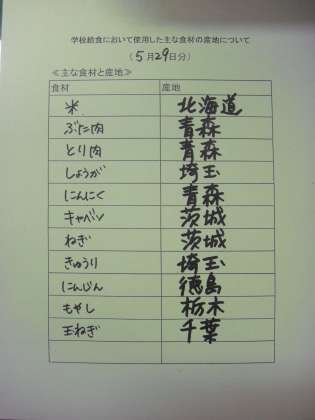 学校給食において使用した主な食材の産地について
(5月29日分)
≪主な食材と産地≫
食材 産地
米 北海道
ぶた肉 青森
とり肉 青森
しょうが 埼玉
にんにく 青森
キャベツ 茨城
ねぎ 茨城
きゅうり 埼玉
にんじん 徳島
もやし 栃木
玉ねぎ 千葉